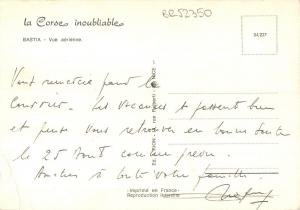 la Corse inoubliable
BR52350
BASTIA - Vue aérienne.
54/237
Vous remercie pour le
Courrier. Les Vacances se passent bien
et pense vous retrouver en bonne Santé
le 25 Aout comme prévu.
Amitiés à toute votre famille.
Imprimé en France
Reproduction interdite